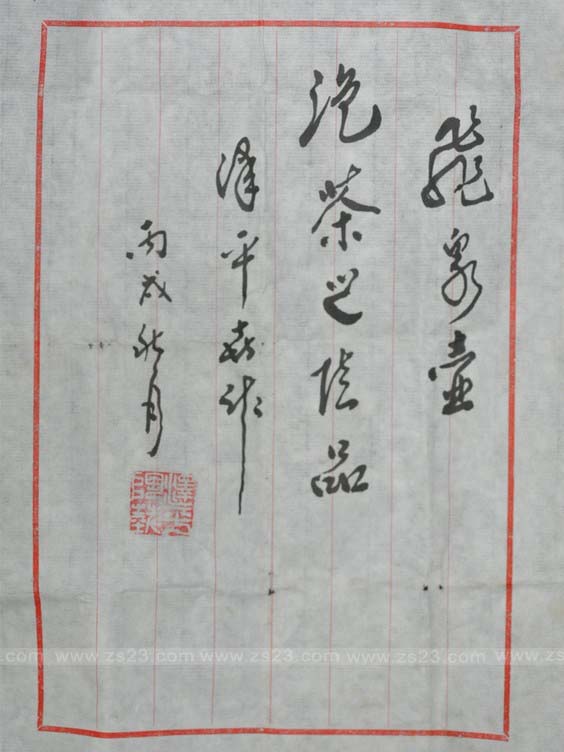 飛泉壺
泡茶之佳品
泽平作
丙戌秋月
.com www.zs23.com www.zs23.com www.zs23.com www.zs